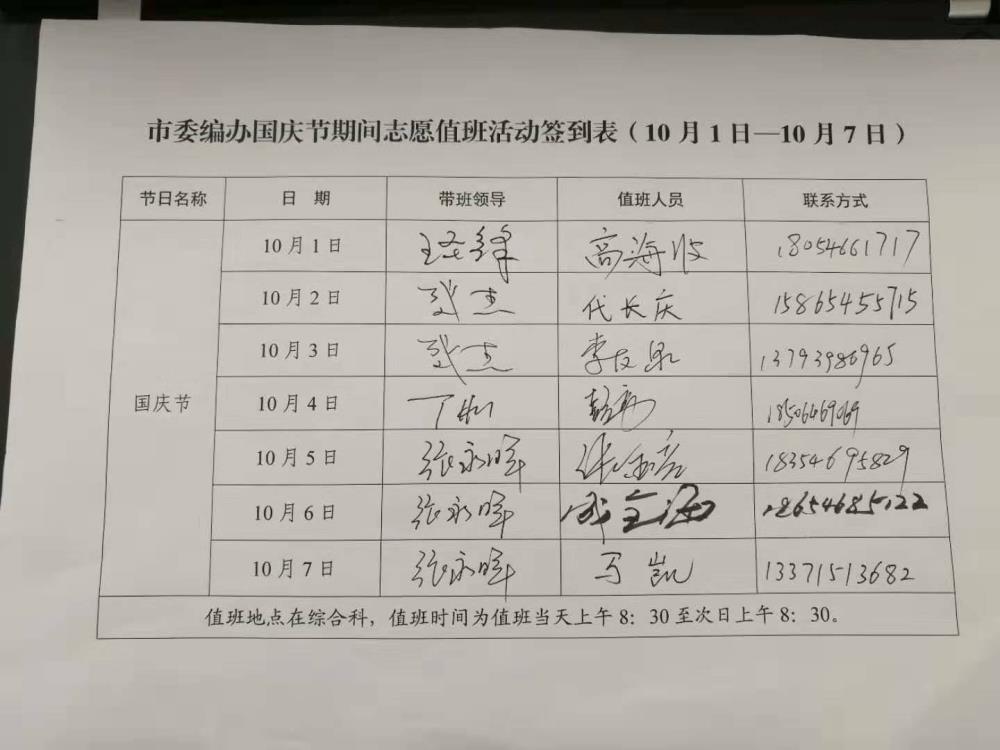 市委编办国庆节期间志愿值班活动签到表（10月1日—10月7日）
节日名称 日 期 带班领导 值班人员 联系方式
国庆节
10月1日 高海波 18054661717
10月2日 代长庆 15865455715
10月3日 李友泉 13793986965
10月4日 18506469069
10月5日 张永晖 18354695829
10月6日 张永晖 18654685122
10月7日 张永晖 马凯 13371513682
值班地点在综合科，值班时间为值班当天上午8：30至次日上午8：30。